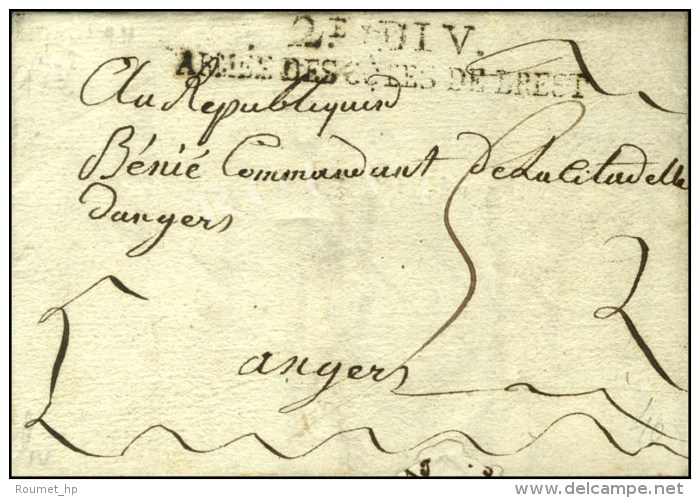 2.E DIV.
ARMÉE DES CÔTES DE BREST
Au Republiquin
Bénié Commandant De La Citadelle
dangers
angers
Roumet_hp
www.delcampe.net